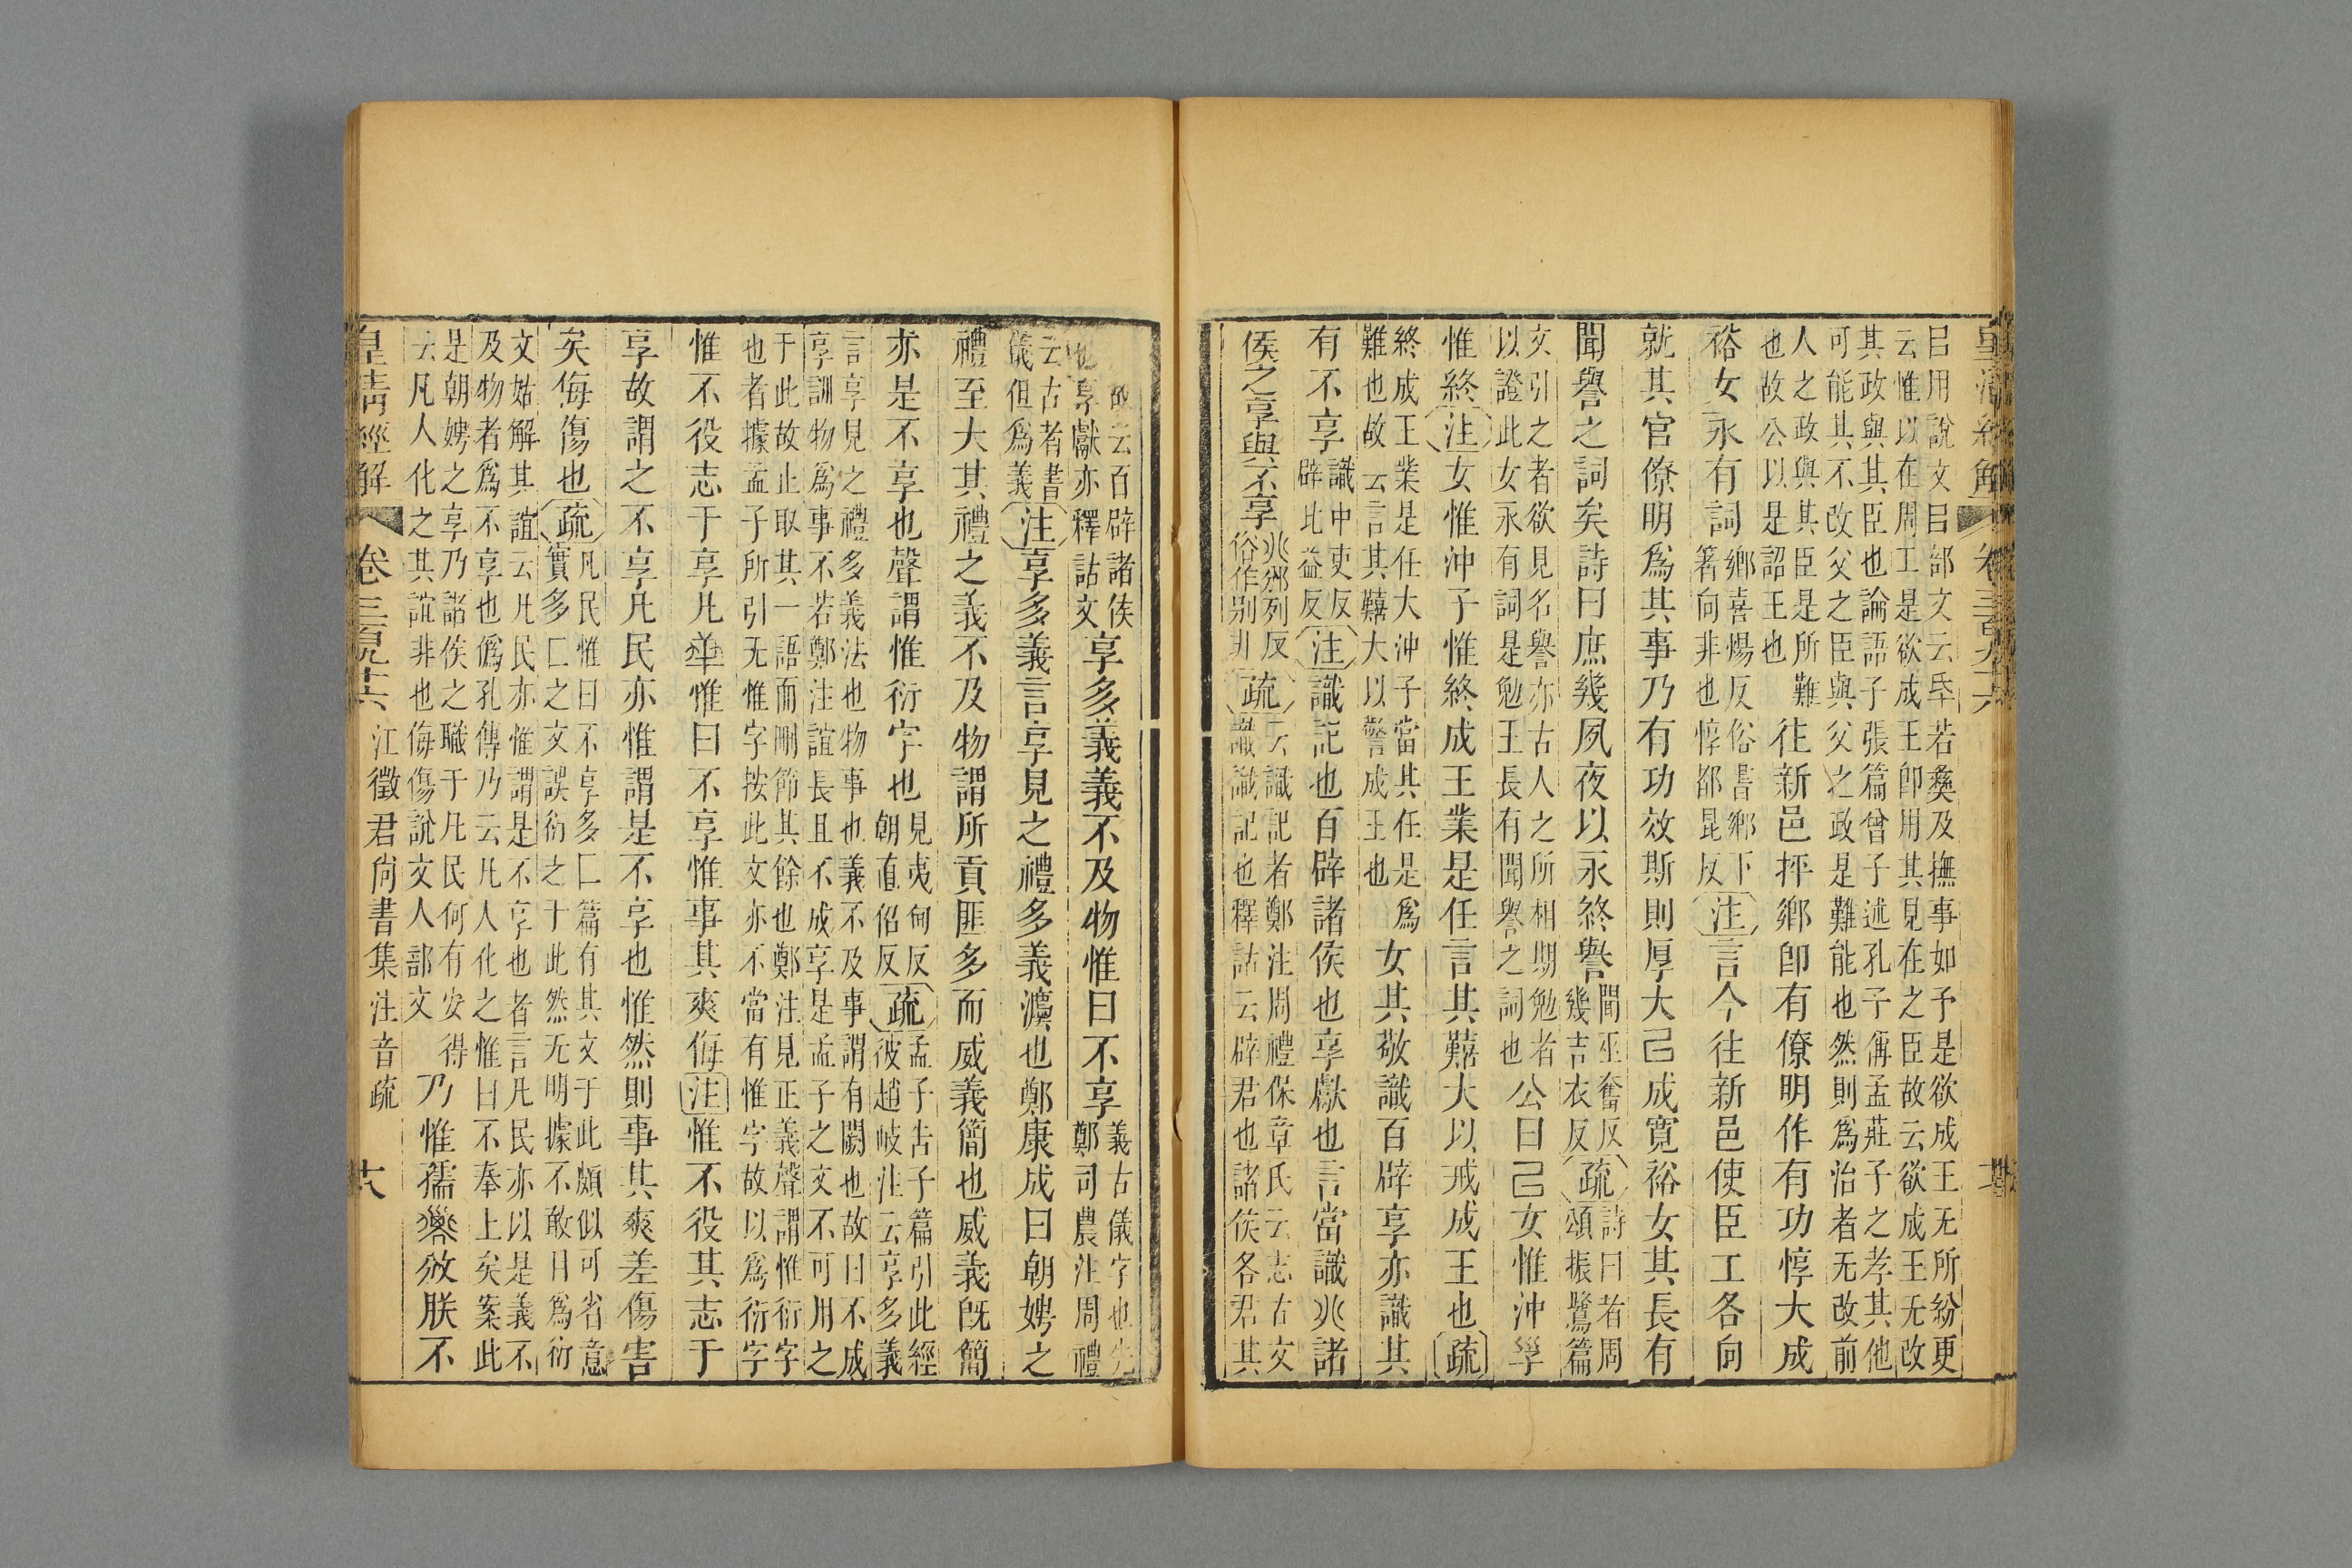 皇清經解 卷三百九十六
㠯用說文㠯部文云厎若彝及撫事如予是欲成王无所紛更
云惟以在周工是欲成王卽用其見在之臣故云欲成王无改
其政與其臣也論語子張篇曾子述孔子偁孟莊子之孝其他
可能其不改父之臣與父之政是難能也然則爲治者无改前
人之政與其臣是所難
也故公以是詔王也
往新邑抨鄉卽有僚明作有功惇大成
裕女永有詞
鄉喜煬反俗書鄉下
箸向非也惇都昆反
注言今往新邑使臣工各向
就其官僚明爲其事乃有功效斯則厚大㠯成寬裕女其長有
聞譽之詞矣詩曰庶幾夙夜以永終譽
聞巫奮反
幾吉衣反
疏
詩曰者周
頌振鷺篇
文引之者欲見名譽亦古人之所相期勉者
以證此女永有詞是勉王長有聞譽之詞也
公曰㠯女惟沖
惟終注女惟沖子惟終成王業是任言其囏大以戒成王也疏
終成王業是任大沖子當其任是爲
難也故云言其囏大以警成王也
女其敬識百辟享亦識其
有不享
識中吏反
辟北益反
注識記也百辟諸侯也享獻也言當識𠔁諸
侯之享與不享
𠔁鄉列反
俗作别非
疏
云識記者鄭注周禮保章氏云志古文
識識記也釋詁云辟君也諸侯各君其
故云百辟諸侯
也享獻亦釋詁文
享多義義不及物惟曰不享
義古儀字也先
鄭司農注周禮
云古者書
儀但爲義
注享多義言享見之禮多義灋也鄭康成曰朝娉之
禮至大其禮之義不及物謂所貢匪多而威義簡也威義旣簡
亦是不享也聲謂惟衍字也
見夷甸反
朝直佋反
疏
孟子告子篇引此經
彼趙岐注云享多義
言享見之禮多義法也物事也義不及事謂有闕也故曰不成
享訓物爲事不若鄭注誼長且不成享是孟子之文不可用之
于此故止取其一語而刪節其餘也鄭注見正義聲謂惟衍字
也者據孟子所引无惟字按此文亦不當有惟字故以爲衍字
惟不役志于享凡民惟曰不享惟事其爽侮注惟不役其志于
享故謂之不享凡民亦惟謂是不享也惟然則事其爽差傷害
矣侮傷也疏
凡民惟曰不享多匚篇有其文于此頗似可省意
實多匚之文誤衍之于此然无明據不敢目爲衍
文姑解其誼云凡民亦惟謂是不享也者言凡民亦以是義不
及物者爲不享也僞孔傳乃云凡人化之惟曰不奉上矣案此
是朝娉之享乃諸侯之職于凡民何有安得
云凡人化之其誼非也侮傷說文人部文
乃惟孺攽朕不
皇清經解 卷三百九十六 江徵君尙書集注音疏 十六